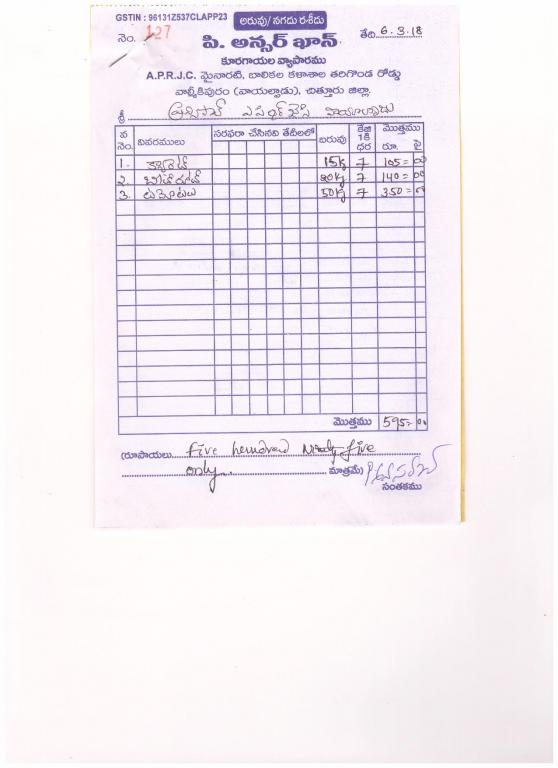 GSTIN : 96131Z537CLAPP23
అరువు/ నగదు రశీదు
నెం. 127
తేది 6.3.18
పి. అన్సర్ ఖాన్
కూరగాయల వ్యాపారము
A.P.R.J.C. మైనారటి, బాలికల కళాశాల తరిగొండ రోడ్డు
వాల్మీకిపురం (వాయల్పాడు), చిత్తూరు జిల్లా.
శ్రీ
వ నెం. వివరములు సరఫరా చేసినవి తేదీలలో బరువు కేజి 1కి ధర మొత్తము రూ. పై
1. క్యారెట్ 15kg 7 105=00
2. బీట్‌రూట్ 20kg 7 140=00
3. టమోటలు 50kg 7 350=00
మొత్తము 595=00
(రూపాయలు five hundred ninety five
only మాత్రమే)
సంతకము